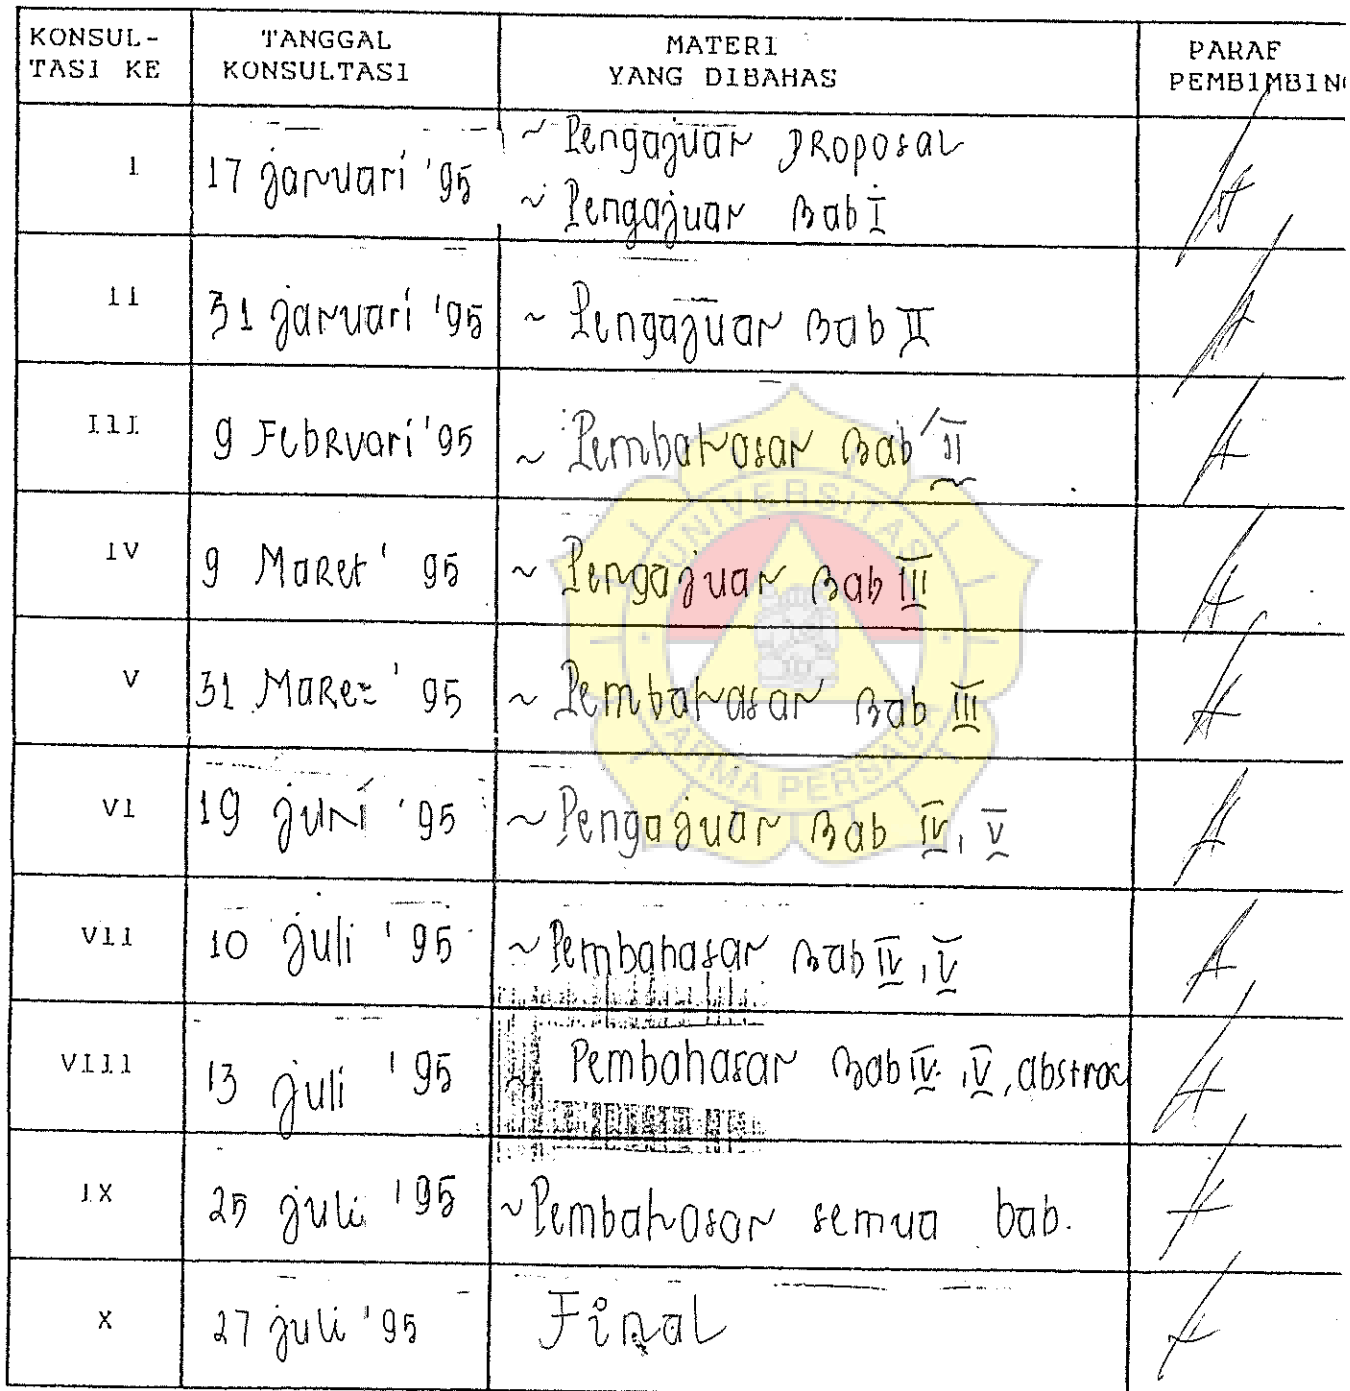 KONSUL- TANGGAL MATERI PARAF
TASI KE KONSULTASI YANG DIBAHAS PEMBIMBING
I 17 januari '95 ~ Pengajuan proposal
~ Pengajuan Bab I
II 31 januari '95 ~ Pengajuan Bab II
III 9 Februari '95 ~ Pembahasan Bab II
IV 9 Maret '95 ~ Pengajuan Bab III
V 31 Maret '95 ~ Pembahasan Bab III
VI 19 juni '95 ~ Pengajuan Bab IV, V
VII 10 juli '95 ~ Pembahasan Bab IV, V
VIII 13 juli '95 ~ Pembahasan Bab IV, V, abstrac
IX 25 juli '95 ~ Pembahasan semua bab.
X 27 juli '95 Final
UNIVERSITAS
DARMA PERSADA